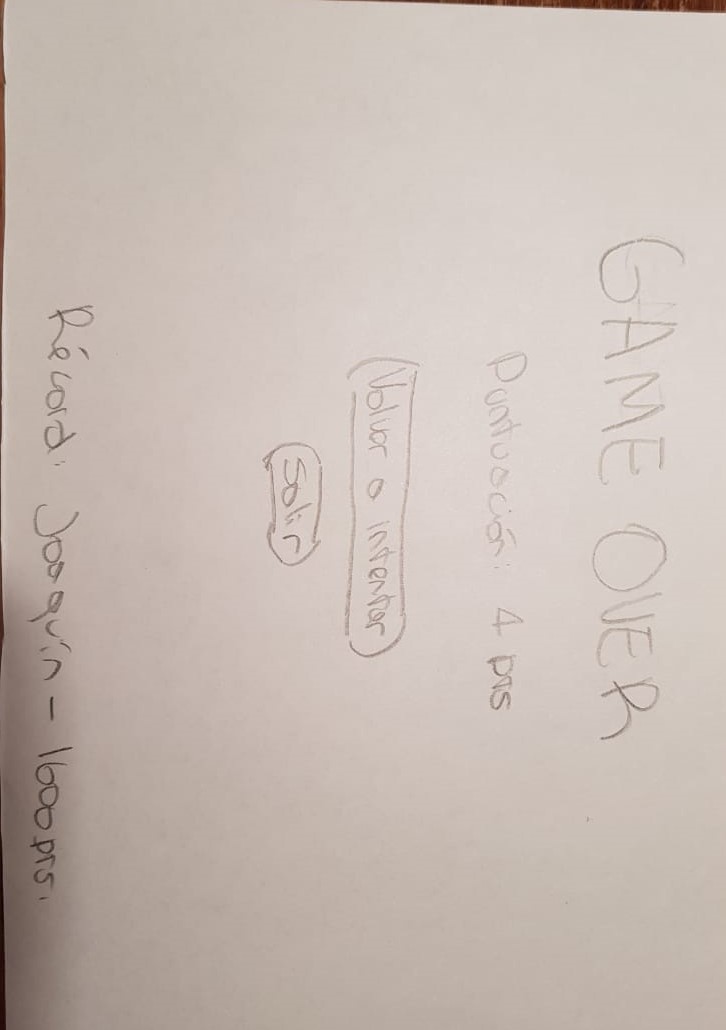 GAME OVER
Puntuación: 4 pts
Volver a intentar
Salir
Récord: Joaquín - 1600 pts.